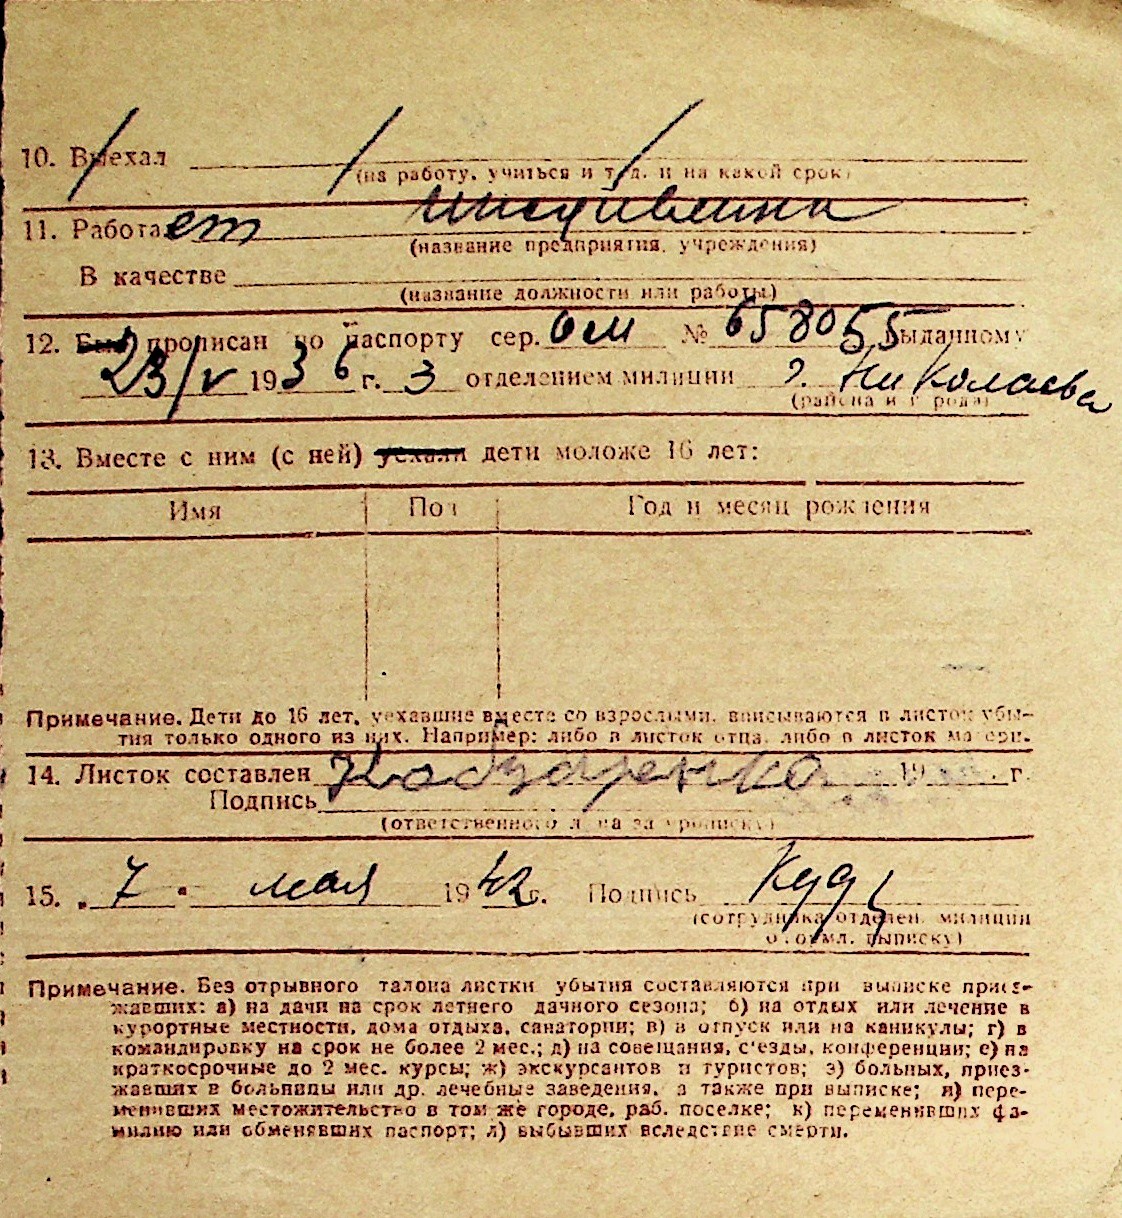 10. Выехал
(на работу, учиться и т. д. и на какой срок)
11. Работает иждивенка
(название предприятия, учреждения)
В качестве
(название должности или работы)
12. Был прописан по паспорту сер. ом № 658055 выданному
23/V 1936 г. 3 отделением милиции г. Николаева
(района и города)
13. Вместе с ним (с ней) уехали дети моложе 16 лет:
Имя Пол Год и месяц рождения
Примечание. Дети до 16 лет, уехавшие вместе со взрослыми, вписываются в листок убы-
тия только одного из них. Например: либо в листок отца, либо в листок матери.
14. Листок составлен 19 г.
Подпись
(ответственного лица за прописку)
15. „ 7 " мая 1942 г. Подпись
(сотрудника отделен. милиции
оформл. выписку)
Примечание. Без отрывного талона листки убытия составляются при выписке приез-
жавших: а) на дачи на срок летнего дачного сезона; б) на отдых или лечение в
курортные местности, дома отдыха, санатории; в) в отпуск или на каникулы; г) в
командировку на срок не более 2 мес.; д) на совещания, с'езды, конференции; е) на
краткосрочные до 2 мес. курсы; ж) экскурсантов и туристов; з) больных, приез-
жавших в больницы или др. лечебные заведения, а также при выписке; и) пере-
менивших местожительство в том же городе, раб. поселке; к) переменивших фа-
милию или обменявших паспорт; л) выбывших вследствие смерти.